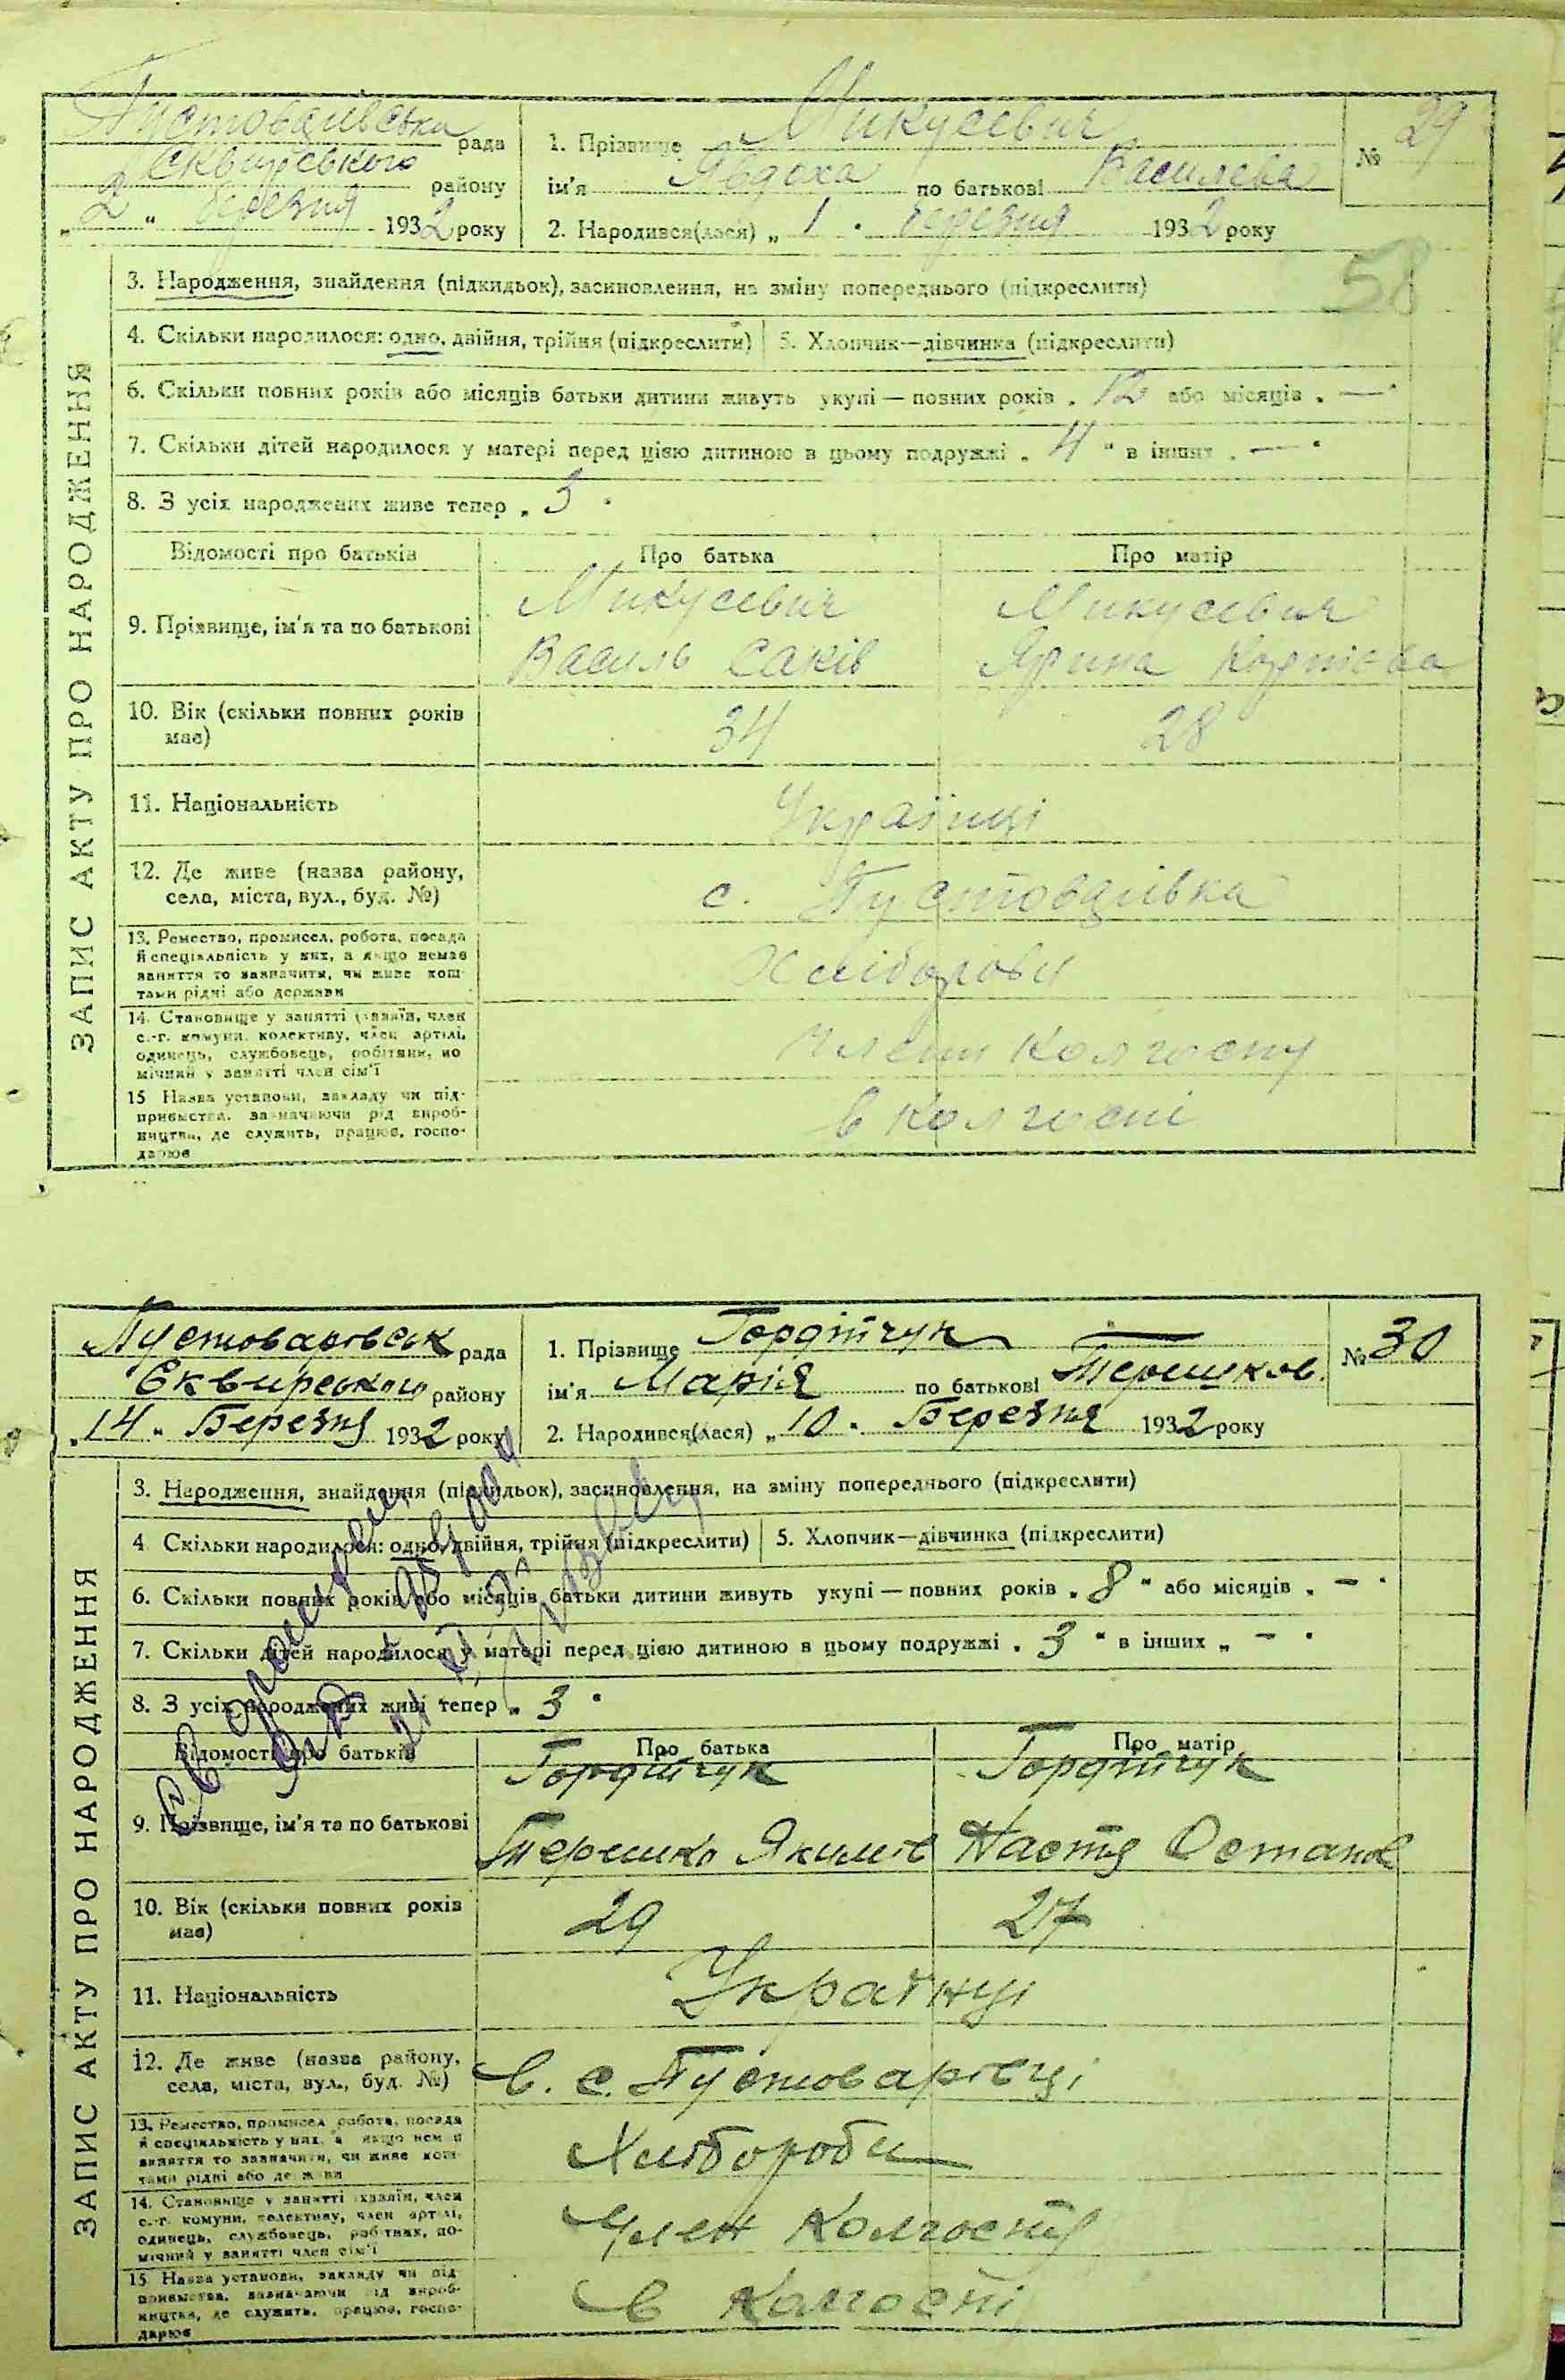 Пустоварівська рада
Сквирського району
„ 2 " березня 1932 року
1. Прізвище Микусевич
ім'я Явдоха по батькові Василева
2. Народився(лася) „ 1 " березня 1932 року
№ 29
58
ЗАПИС АКТУ ПРО НАРОДЖЕННЯ
3. Народження, знайдення (підкидьок), засиновлення, на зміну попереднього (підкреслити)
4. Скільки народилося: одно, двійня, трійня (підкреслити)
5. Хлопчик—дівчинка (підкреслити)
6. Скільки повних років або місяців батьки дитини живуть укупі — повних років „ 12 або місяців „ — "
7. Скільки дітей народилося у матері перед цією дитиною в цьому подружжі „ 4 " в інших „ — "
8. З усіх народжених живе тепер „ 3 "
Відомості про батьків Про батька Про матір
9. Прізвище, ім'я та по батькові
Микусевич Микусевич
Василь Саків Ярина
10. Вік (скільки повних років має) 34 28
11. Національність Українці
12. Де живе (назва району, села, міста, вул., буд. №) с. Пустоварівка
13. Ремество, промисел, робота, посада
й спеціяльність у них, а якщо немає
заняття то зазначити, чи живе кош-
тами рідні або держави
Хлібороби
14. Становище у занятті (хазяїн, член
с.-г. комуни, колективу, член артілі,
одинець, службовець, робітник, по-
мічний у занятті член сім'ї
Члени Колгоспу
15 Назва установи, закладу чи під-
приємства, зазначаючи рід вироб-
ництва, де служить, працює, госпо-
дарює
в колгоспі
Пустоварівськ рада
Сквирського району
„ 14 " Березня 1932 року
1. Прізвище Гордійчук
ім'я Марія по батькові Терешков.
2. Народився(лася) „ 10 " Березня 1932 року
№ 30
ЗАПИС АКТУ ПРО НАРОДЖЕННЯ
3. Народження, знайдення (підкидьок), засиновлення, на зміну попереднього (підкреслити)
4 Скільки народилося: одно, двійня, трійня (підкреслити)
5. Хлопчик—дівчинка (підкреслити)
6. Скільки повних років або місяців батьки дитини живуть укупі — повних років „ 8 " або місяців „ — "
7. Скільки дітей народилося у матері перед цією дитиною в цьому подружжі „ 3 " в інших „ — "
8. З усіх народжених живі тепер „ 3 "
Відомості про батьків Про батька Про матір
9. Прізвище, ім'я та по батькові
Гордійчук Гордійчук
Терешко Якимів Настя Остапов
10. Вік (скільки повних років має) 29 27
11. Національність Українці
12. Де живе (назва району, села, міста, вул., буд. №) в. с. Пустоварівці
13. Ремество, промисел робота, посада
й спеціяльність у них, а якщо нема
заняття то зазначити, чи живе кош-
тами рідні або держави
Хлібороби
14. Становище у занятті (хазяїн, член
с.-г. комуни, колективу, член артілі,
одинець, службовець, робітник, по-
мічний у занятті член сім'ї
Член Колгоспу
15 Назва установи, закладу чи під-
приємства, зазначаючи рід вироб-
ництва, де служить, працює, госпо-
дарює
в Колгоспі